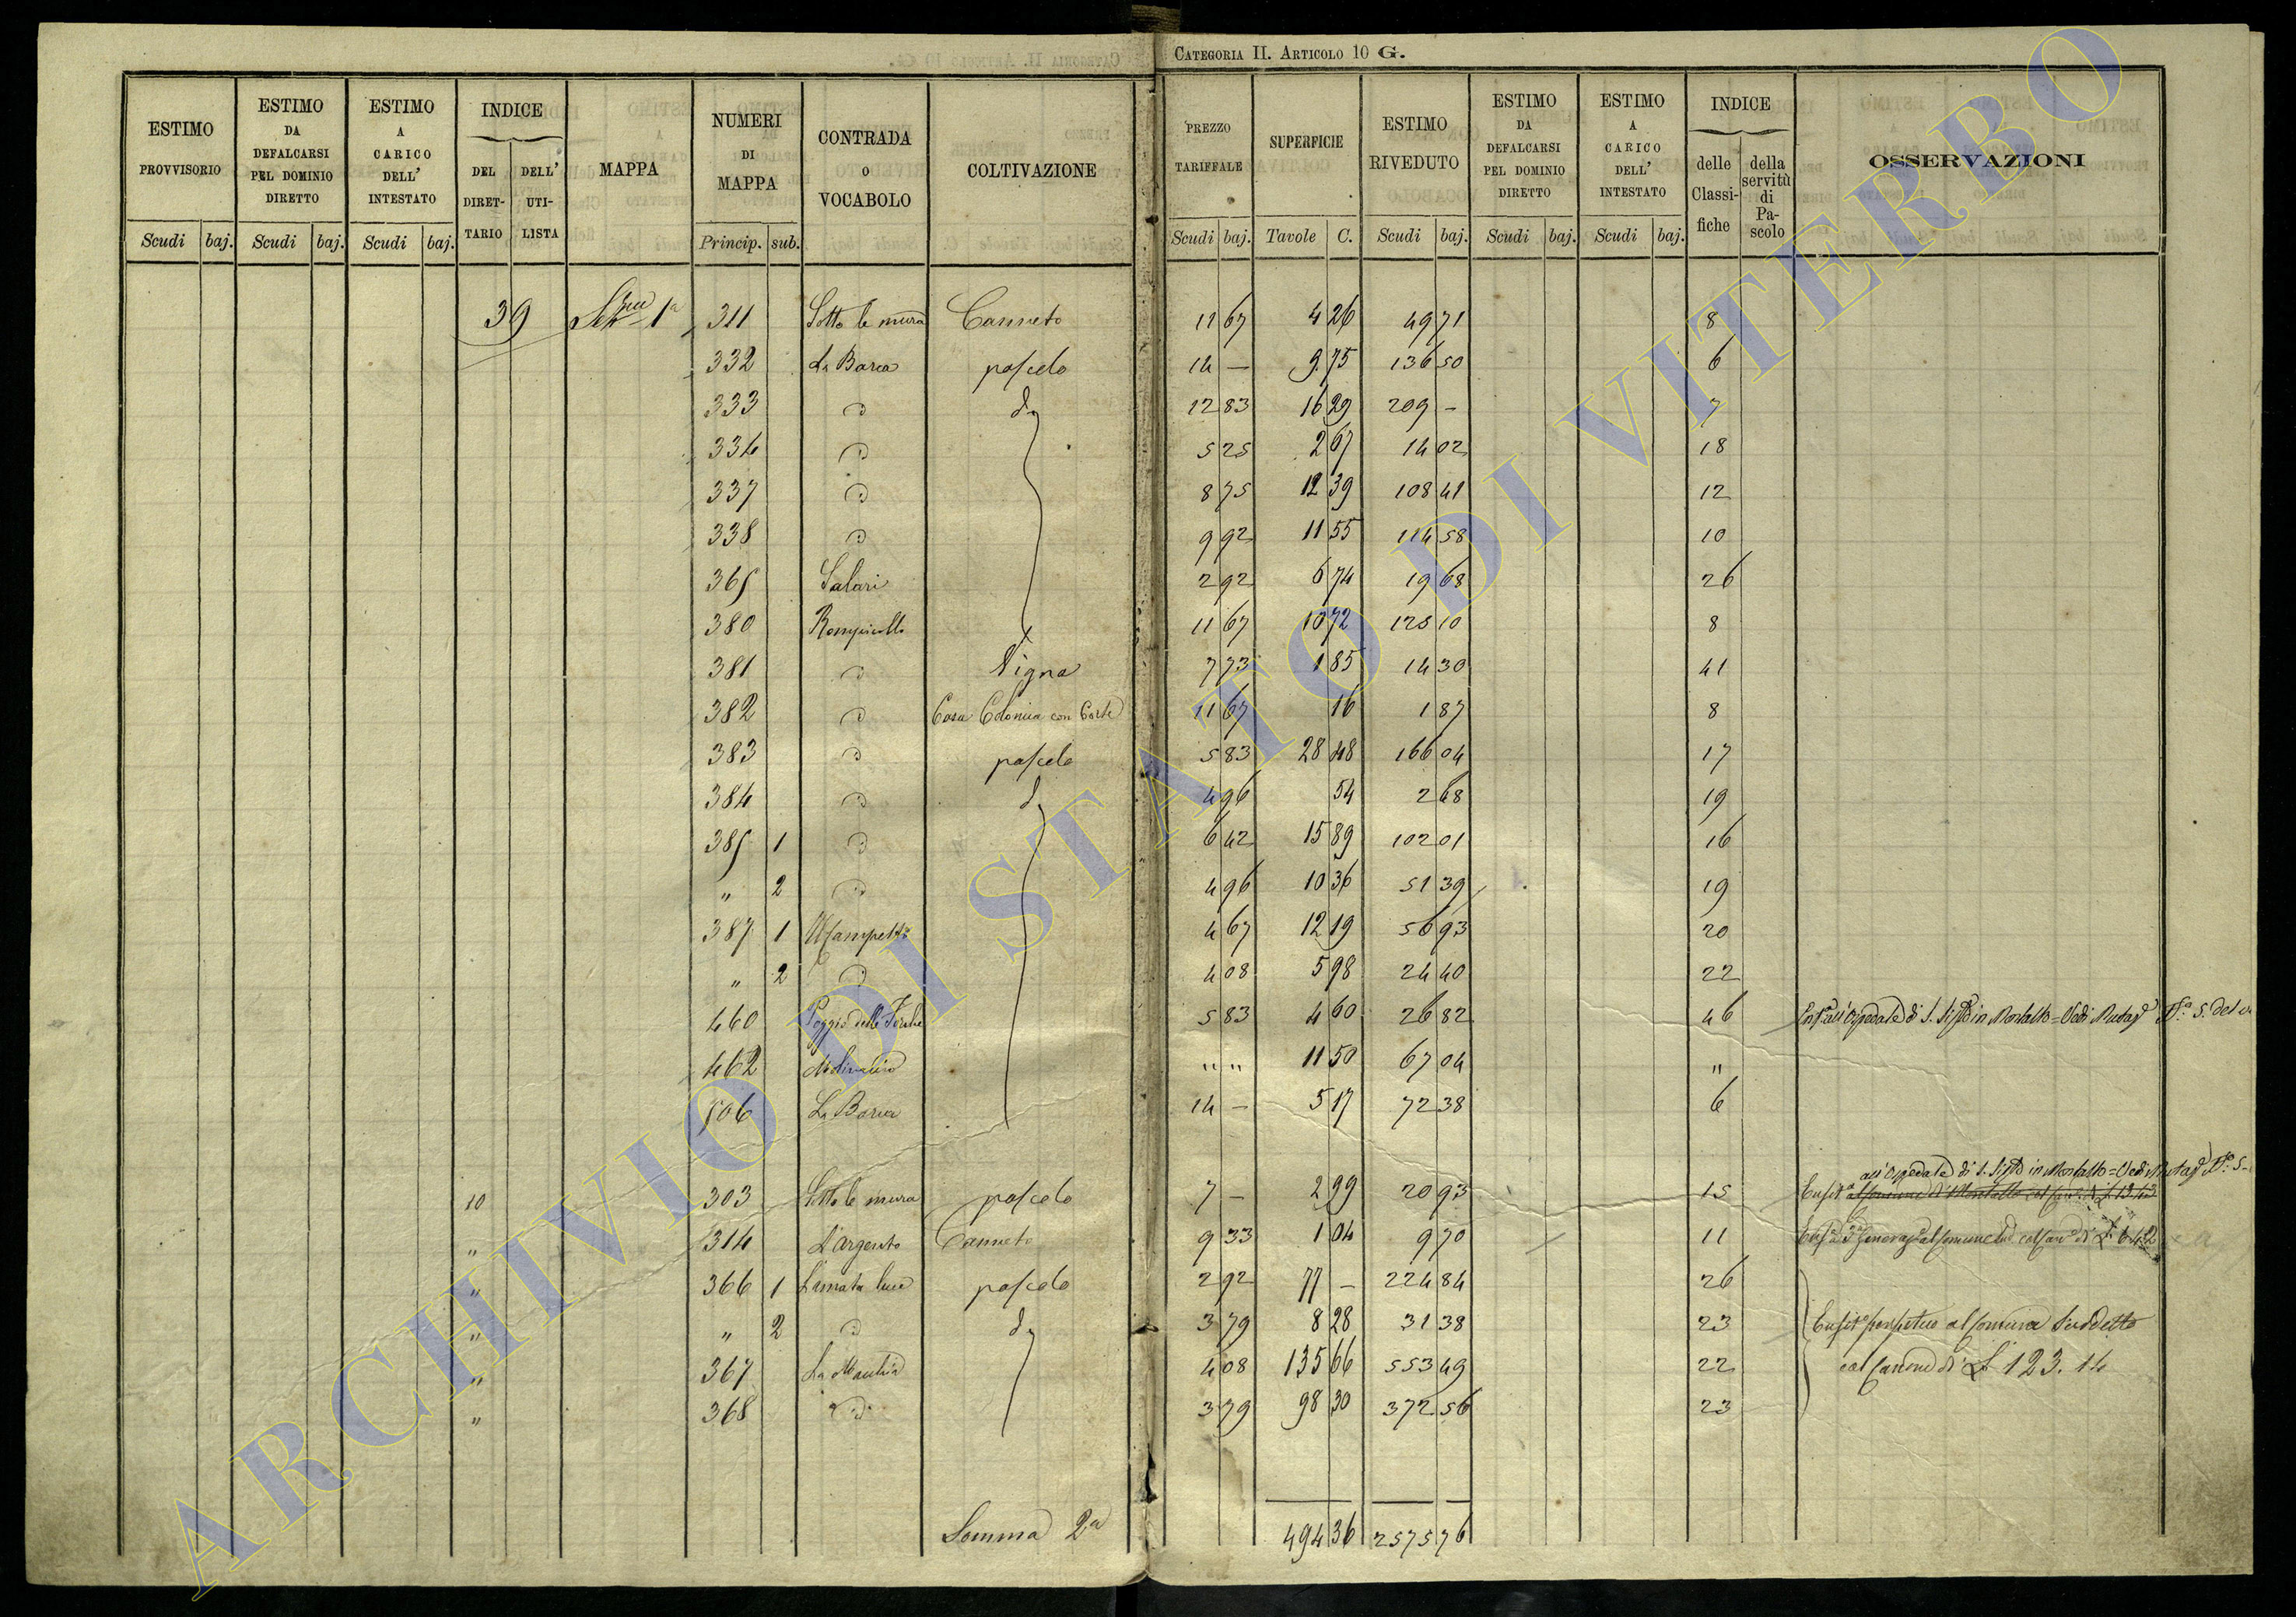 CATEGORIA II. ARTICOLO 10 G.
ESTIMO PROVVISORIO | ESTIMO DA DEFALCARSI PEL DOMINIO DIRETTO | ESTIMO A CARICO DELL' INTESTATO | INDICE | MAPPA | NUMERI DI MAPPA | CONTRADA O VOCABOLO | COLTIVAZIONE | PREZZO TARIFFALE | SUPERFICIE | ESTIMO RIVEDUTO | ESTIMO DA DEFALCARSI PEL DOMINIO DIRETTO | ESTIMO A CARICO DELL' INTESTATO | INDICE | OSSERVAZIONI
DEL DIRET-TARIO | DELL' UTI-LISTA | delle Classi-fiche | della servitù di Pa-scolo
Scudi baj. | Scudi baj. | Scudi baj. | Princip. sub. | Scudi baj. | Tavole C. | Scudi baj. | Scudi baj. | Scudi baj.
39 1a 311 Sotto le mura Canneto 11 67 4 26 49 71 8
332 La Barca pascolo 14 — 9 75 136 50 6
333 " d° 12 83 16 29 209 — 7
334 " 5 25 2 67 14 02 18
337 " 8 75 12 39 108 41 12
338 " 9 92 11 55 114 58 10
365 Salari 2 92 6 74 19 68 26
380 11 67 10 72 125 10 8
381 " Vigna 7 73 1 85 14 30 41
382 " Casa Colonica con Corte 11 67 16 1 87 8
383 " pascolo 5 83 28 48 166 04 17
384 " d° 4 96 54 2 68 19
385 1 " 6 42 15 89 102 01 16
" 2 " 4 96 10 36 51 39 19
387 1 4 67 12 19 56 93 20
" 2 " 4 08 5 98 24 40 22
460 Poggio delle Forche 5 83 4 60 26 82 46 all'Ospedale di S. Sisto in Montalto = Vedi
462 " " 11 50 67 04 "
506 La Barca 14 — 5 17 72 38 6
all'Ospedale di S. Sisto in Montalto = Vedi
10 303 Sotto le mura pascolo 7 — 2 99 20 93 15
" 314 L'argento Canneto 9 33 1 04 9 70 11
" 366 1 pascolo 2 92 77 — 224 84 26
" " 2 " d° 3 79 8 28 31 38 23 perpetuo al Comune Suddetto
" 367 La Macchia 4 08 135 66 553 49 22 col Canone di £ 123.14
" 368 " 3 79 98 30 372 56 23
Somma 2a 494 36 2575 76
ARCHIVIO DI STATO DI VITERBO